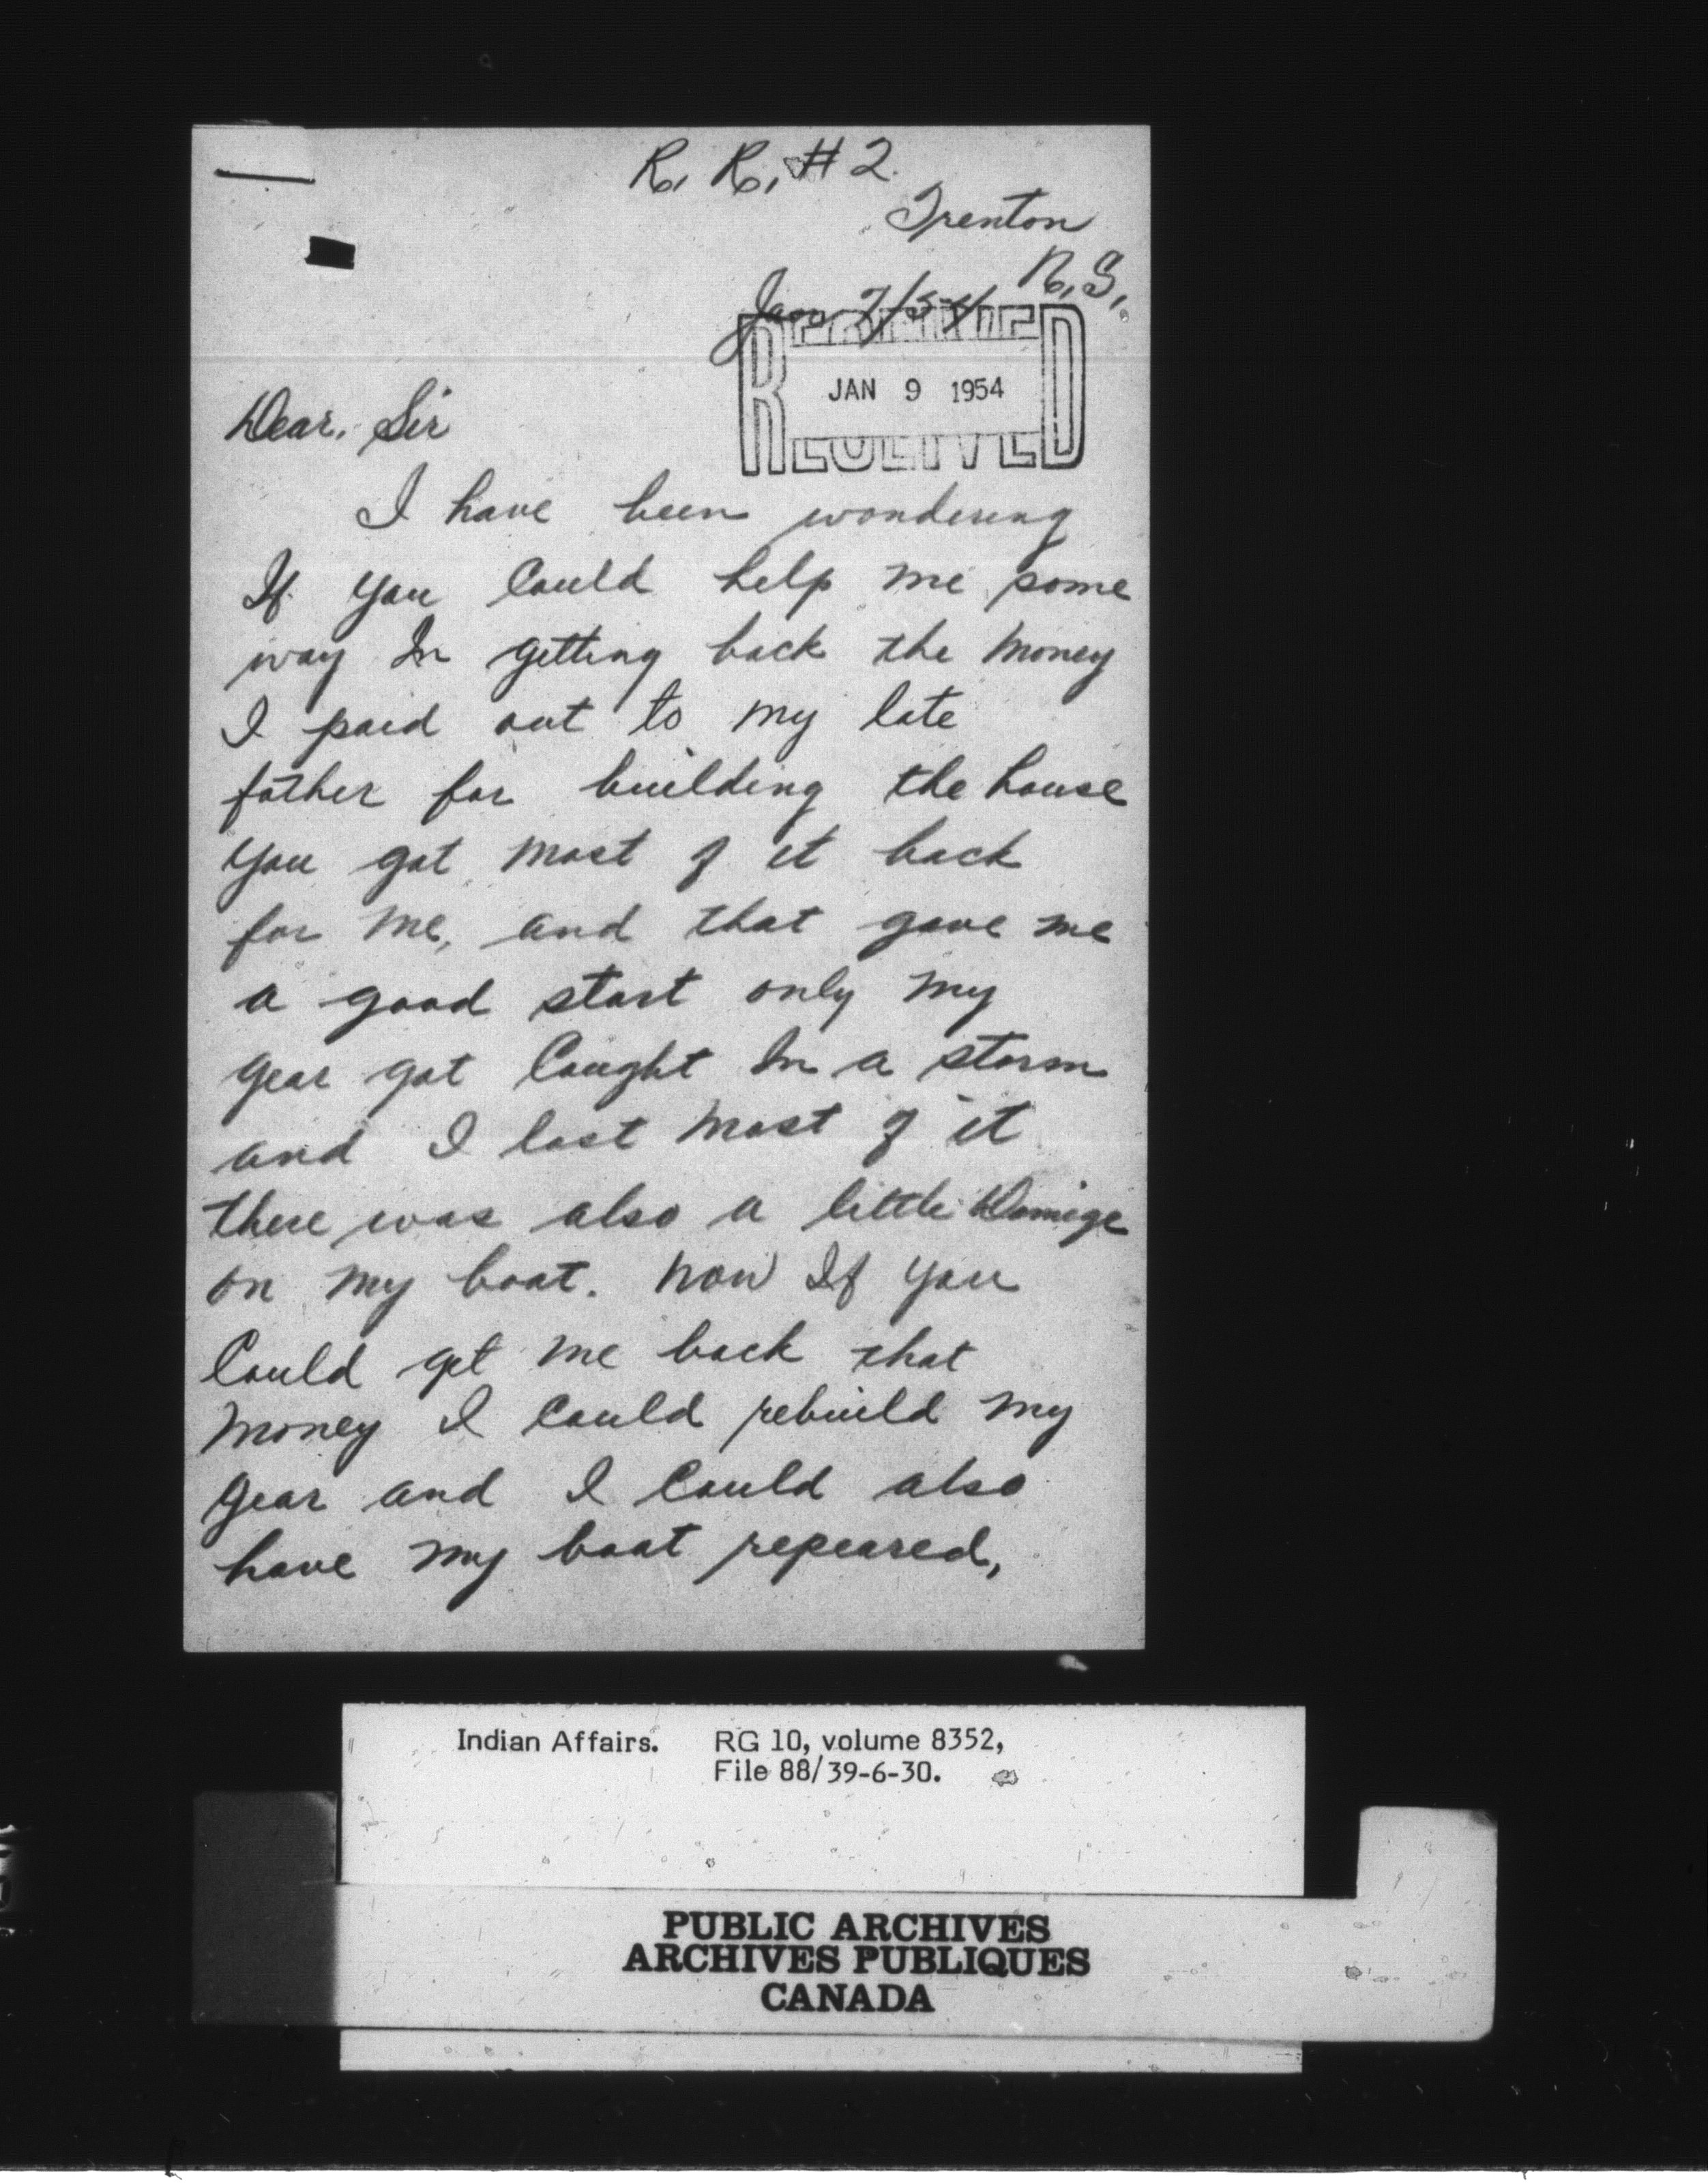 R. R. #2.
Trenton
N.S.
Jan 7/54
RECEIVED
JAN 9 1954
RECEIVED
Dear. Sir
I have been wondering
If you Could help me some
way In getting back the money
I paid out to my late
father for building the house
you got most of it back
for me, and that gave me
a good start only my
gear got Caught In a storm
and I lost most of it
there was also a little Damige
on my boat. Now If you
Could get me back that
money I Could rebuild my
gear and I Could also
have my boat repeared,
Indian Affairs. RG 10, volume 8352,
File 88/39-6-30.
PUBLIC ARCHIVES
ARCHIVES PUBLIQUES
CANADA